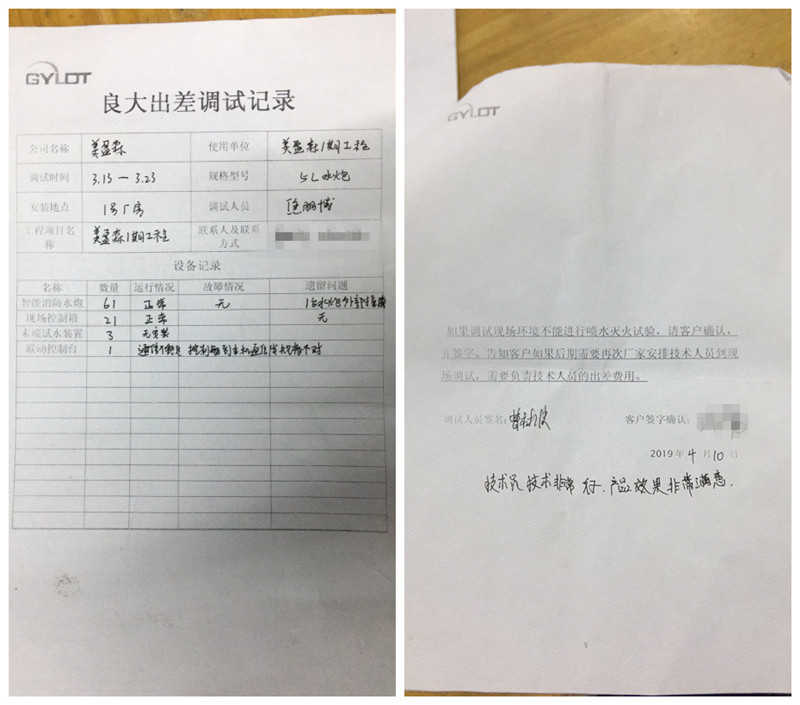 GYLDT
良大出差调试记录
公司名称 美盈森 使用单位 美盈森1期工程
调试时间 3.13—3.23 规格型号 5L水炮
安装地点 1号厂房 调试人员
工程项目名称 美盈森1期工程 联系人及联系方式
设备记录
名称 数量 运行情况 故障情况 遗留问题
智能消防水炮 61 正常 无
现场控制箱 21 正常 无
末端试水装置 3 无安装
联动控制台 1
GYLDT
如果调试现场环境不能进行喷水灭火试验，请客户确认，
并签字。告知客户如果后期需要再次厂家安排技术人员到现
场调试，需要负责技术人员的出差费用。
调试人员签名： 客户签字确认：
2019年4月10日
技术员技术非常好、产品效果非常满意.
5